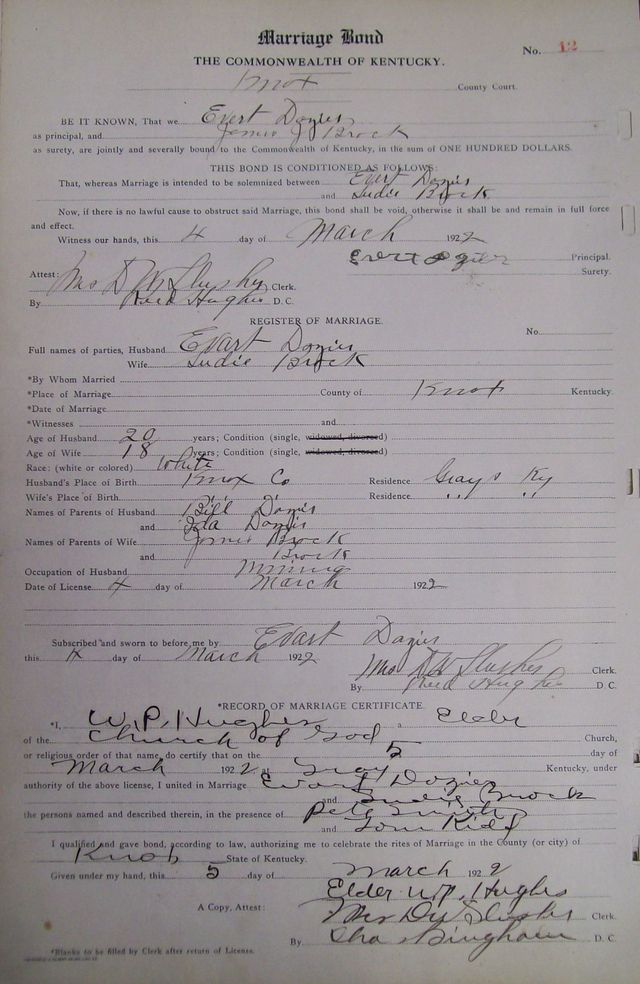 Marriage Bond
No. 12
THE COMMONWEALTH OF KENTUCKY.
Knox County Court.
BE IT KNOWN, That we Evert Dozier
as principal, and James J Brock
as surety, are jointly and severally bound to the Commonwealth of Kentucky, in the sum of ONE HUNDRED DOLLARS.
THIS BOND IS CONDITIONED AS FOLLOWS:
That, whereas Marriage is intended to be solemnized between Evart Dozier
and Sudie Brock
Now, if there is no lawful cause to obstruct said Marriage, this bond shall be void, otherwise it shall be and remain in full force
and effect.
Witness our hands, this 4 day of March 1922
Evert Dozier Principal.
Surety.
Attest:
Mrs D W Slusher Clerk.
By Reed Hughes D. C.
REGISTER OF MARRIAGE.
No.
Full names of parties, Husband Evart Dozier
Wife Sudie Brock
*By Whom Married
*Place of Marriage County of Knox Kentucky.
*Date of Marriage
*Witnesses and
Age of Husband 20 years; Condition (single, widowed, divorced)
Age of Wife 18 years; Condition (single, widowed, divorced)
Race: (white or colored) White
Husband's Place of Birth Knox Co Residence Grays Ky
Wife's Place of Birth " " Residence " "
Names of Parents of Husband Bill Dozier
and Ida Dozier
Names of Parents of Wife James Brock
and Brock
Occupation of Husband Mining
Date of License 4 day of March 1922
Subscribed and sworn to before me by Evart Dozier
this 4 day of March 1922
Mrs D W Slusher Clerk.
By Reed Hughes D. C.
*RECORD OF MARRIAGE CERTIFICATE.
*I, W. P. Hughes a Elder
of the Church of God Church,
or religious order of that name, do certify that on the 5 day of
March 1922, at Gray Kentucky, under
authority of the above license, I united in Marriage Evart Dozier
and Sudie Brock
the persons named and described therein, in the presence of Pete Smith
and Tom Kidd
I qualified and gave bond, according to law, authorizing me to celebrate the rites of Marriage in the County (or city) of
Knox State of Kentucky.
Given under my hand, this 5 day of March 1922
Elder W.P. Hughes
A Copy, Attest: Mrs D W Slusher Clerk.
By Bingham D. C.
*Blanks to be filled by Clerk after return of License.